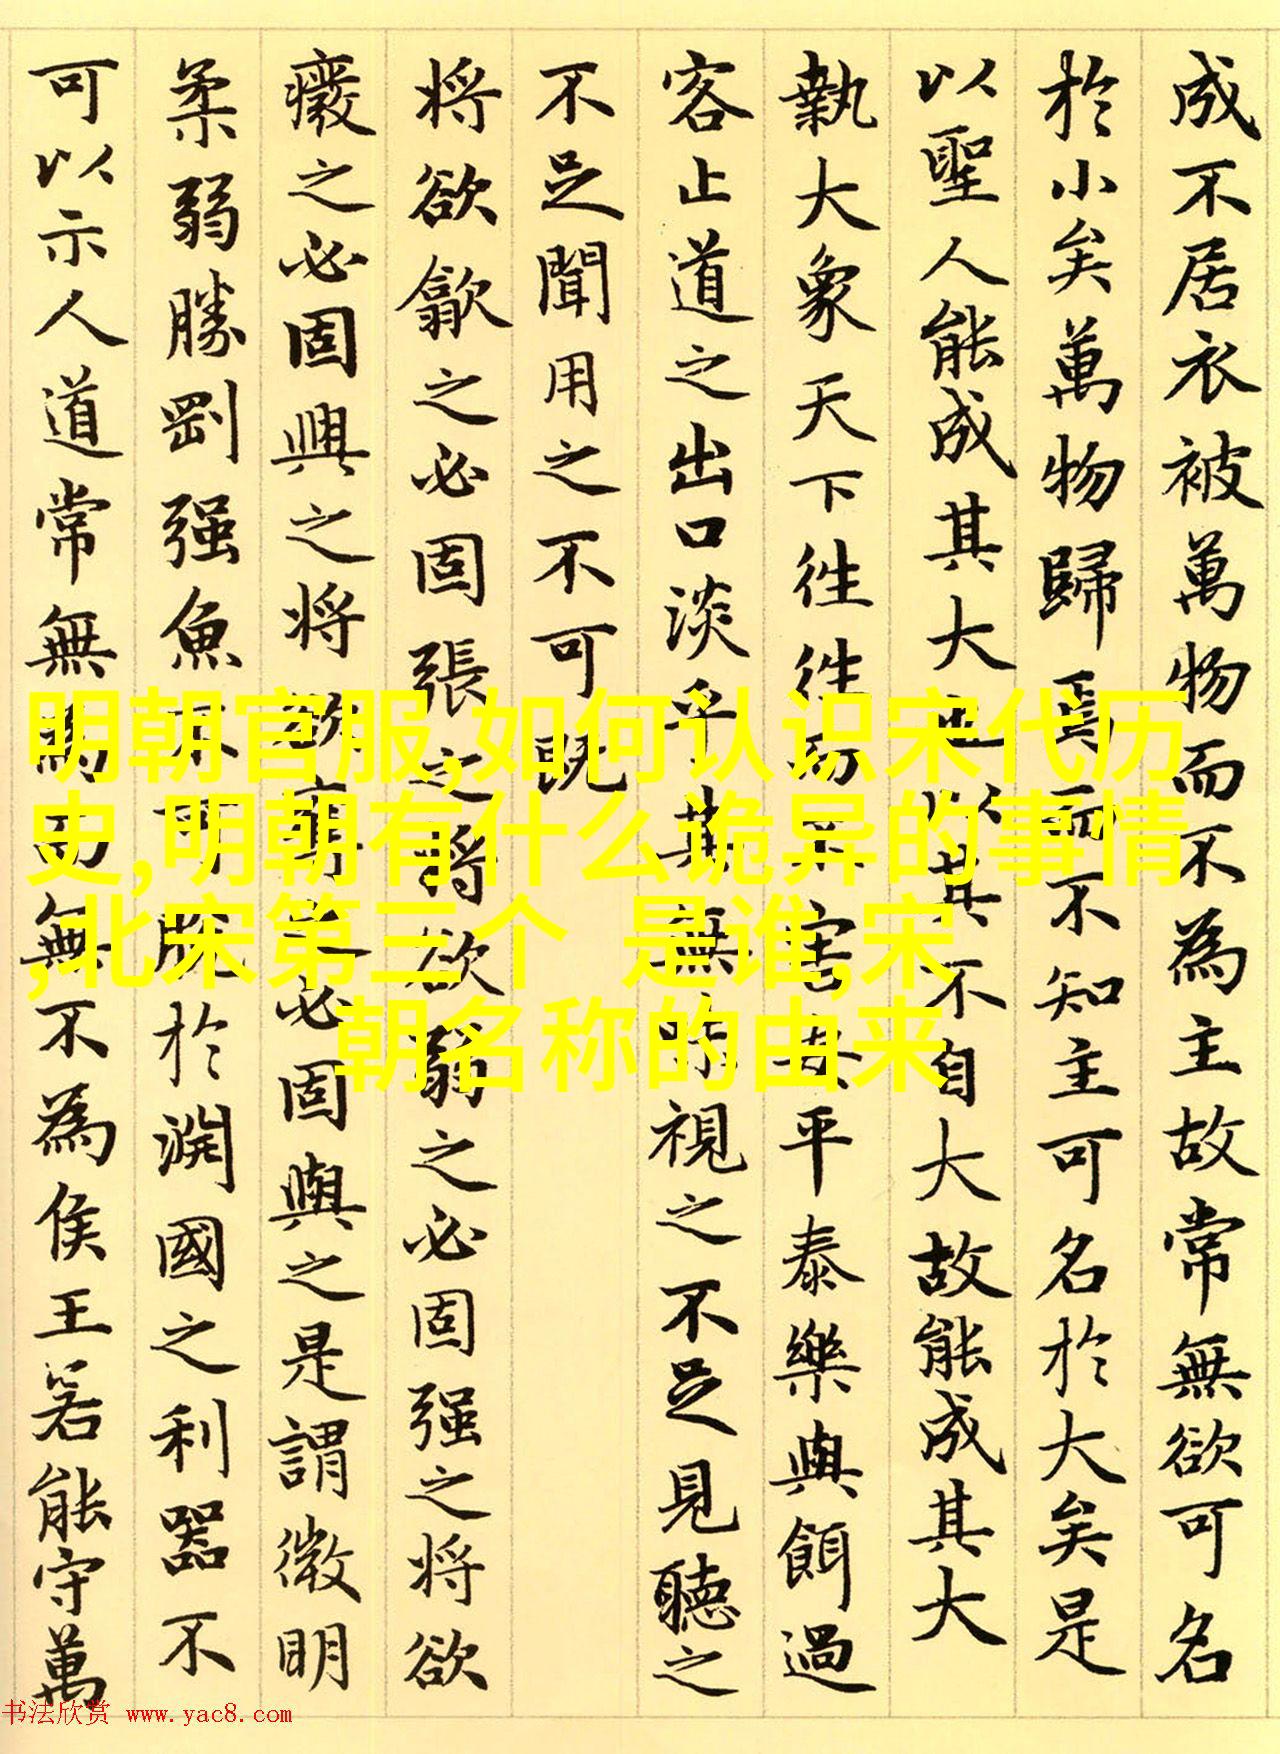 成不居衣被萬物而不為主故常無欲可名
於小矣萬物歸焉而不知主可名於大矣是
以聖人能成其大也以其不自大故能成其大
執大象天下徃徃而不害安平泰樂與餌過
客止道之出口淡乎其無味視之不足見聽之
不足聞用之不可既
将欲歙之必固張之将欲弱之必固强之将欲
癈之必固興之将欲奪之必固與之是謂微明
柔弱勝剛强魚不可脱於淵國之利器不
可以示人道常無為而無不為侯王若能守萬
明朝官服,如何认识宋代历
史,明朝有什么诡异的事情
,北宋第三个 是谁,宋
朝名称的由来
书法欣赏 www.yac8.com